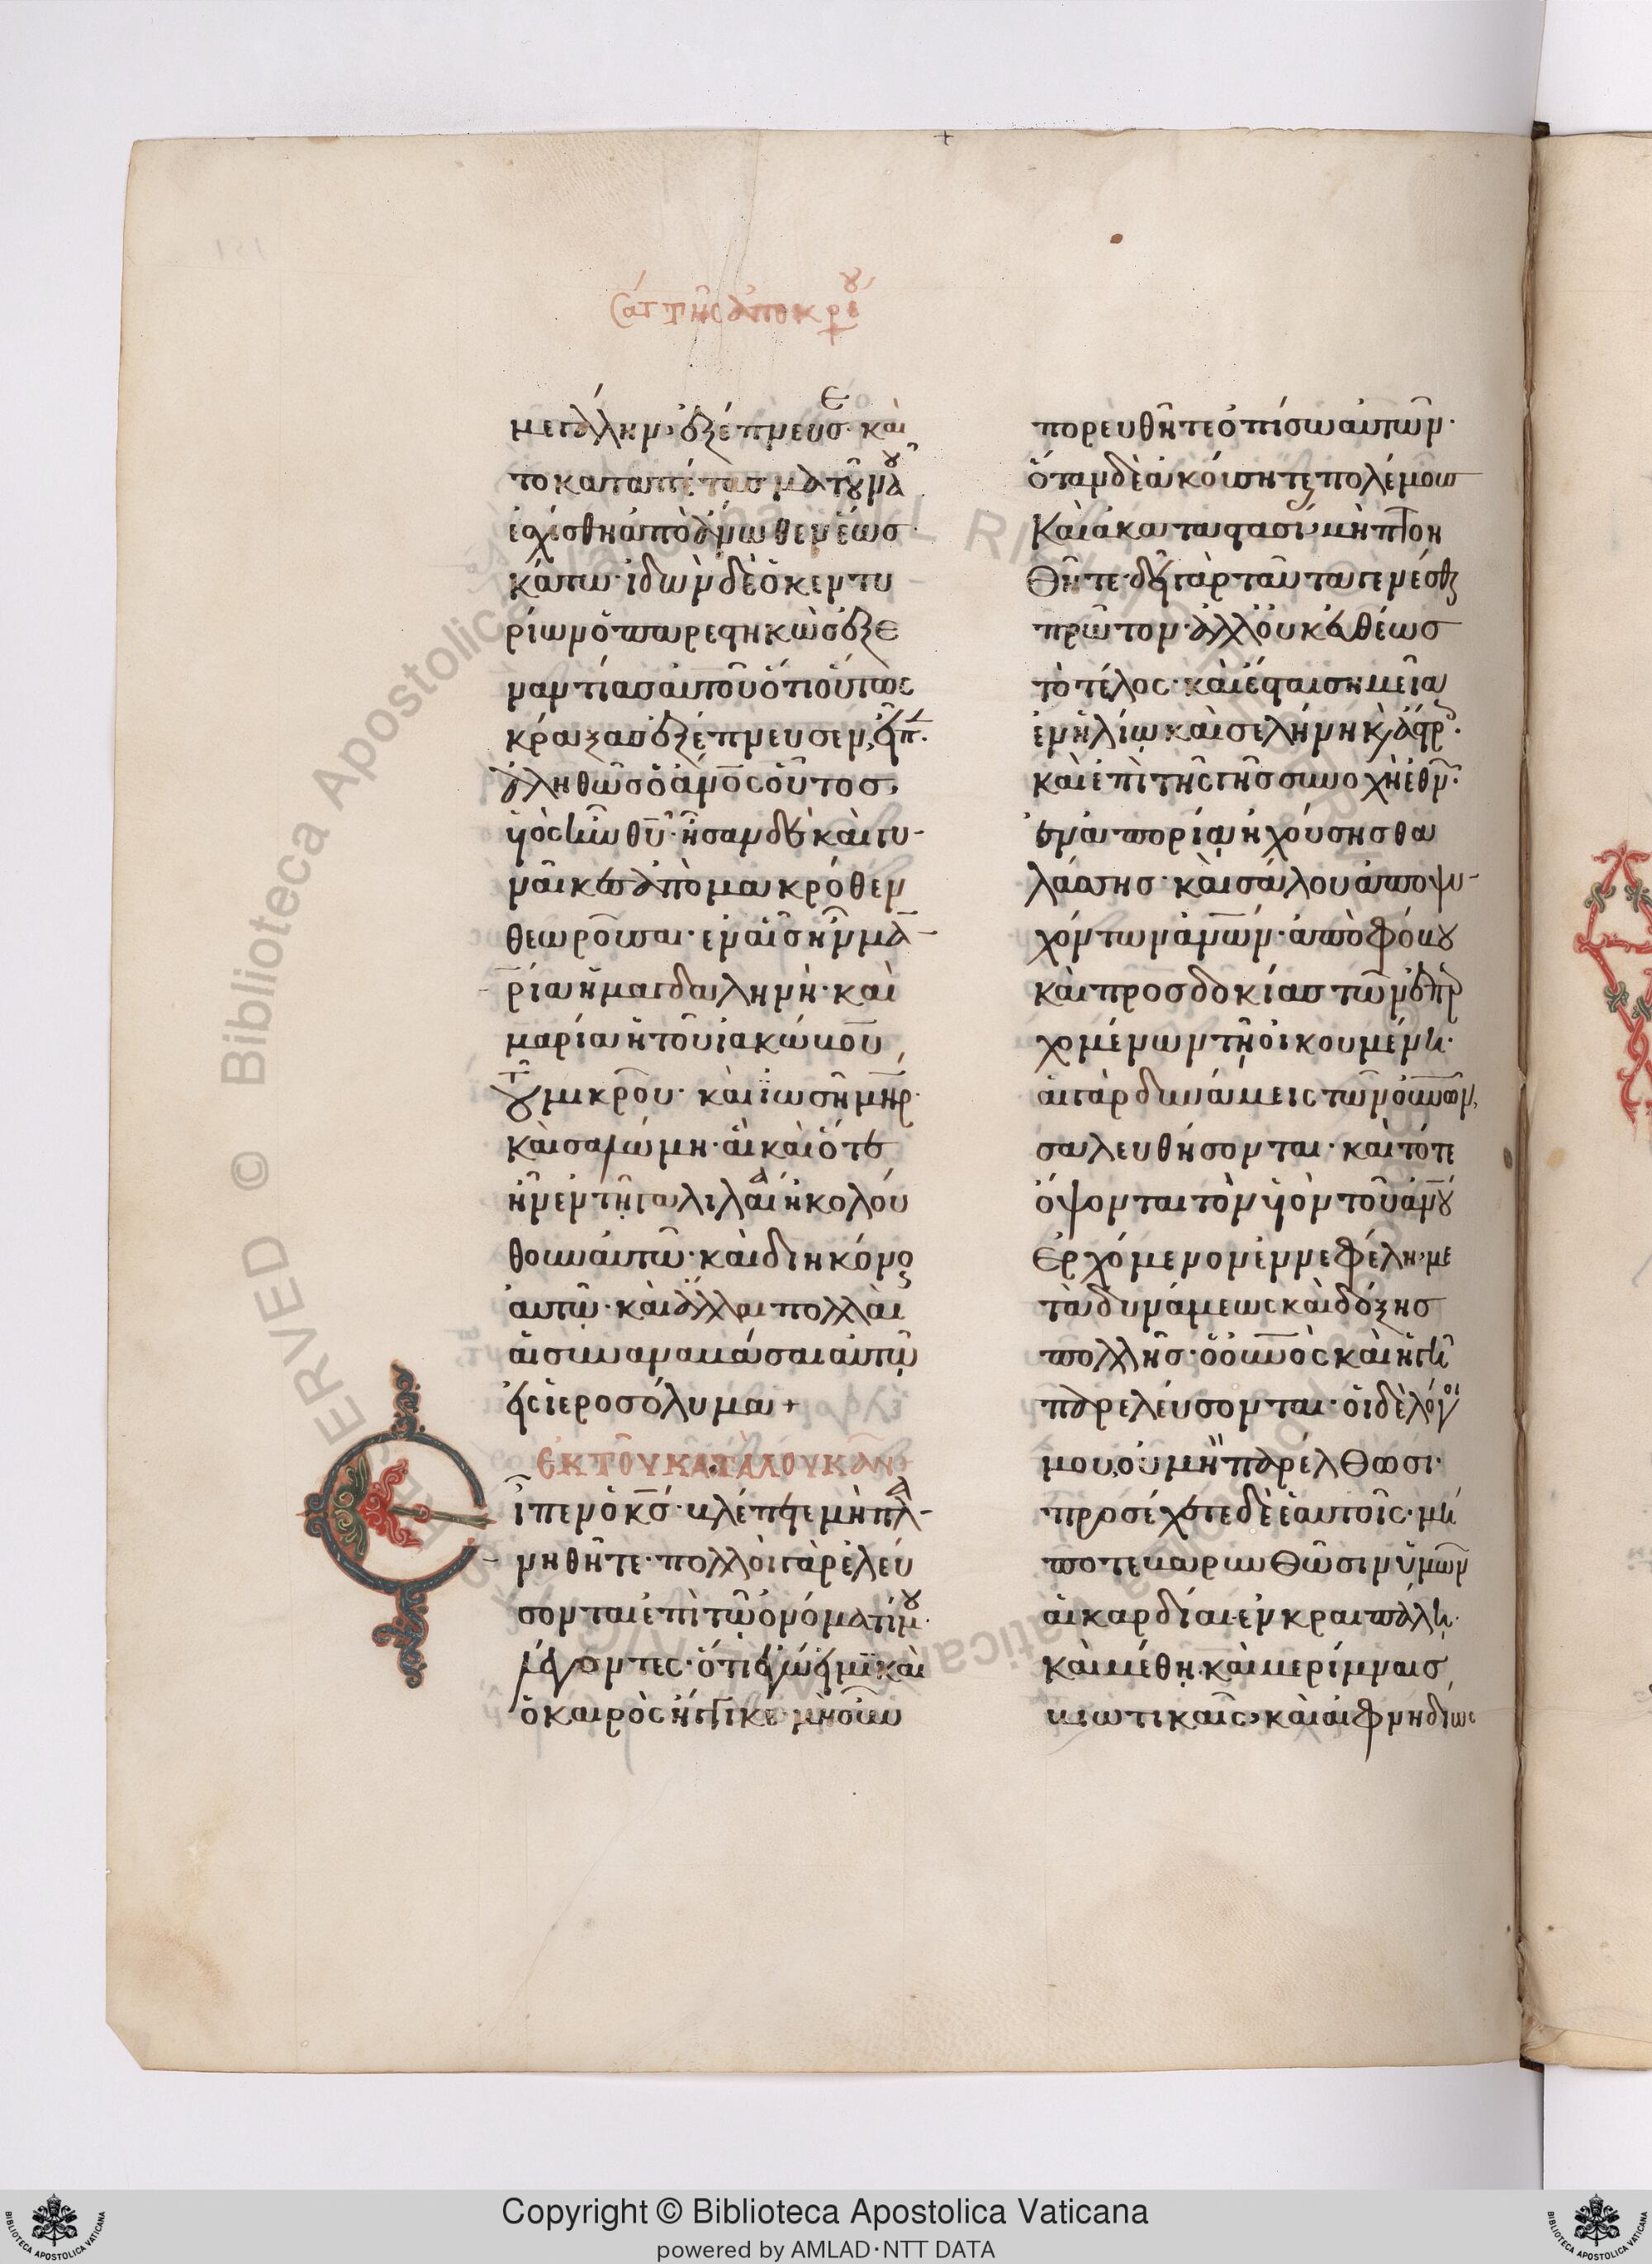 Σάτ τῆς ἀπόκρου
μεγάλην· ἐξέπνευσε· καὶ
το καταπέτασμα τοῦ να
ἐσχίσθη ἀπὸ ἄνωθεν ἕως
κάτω· ἰδὼν δὲ ὁ κεντυ
ρίων ὁ παρεστηκὼς ἐξ ε
ναντίας αὐτοῦ ὅτι οὕτως
κράξας ἐξέπνευσεν, εἶπ.
ἀληθῶς ὁ ἄνος οὗτος
υἱὸς ἦν θῦ· ἦσαν δὲ καὶ γυ-
ναῖκες ἀπὸ μακρόθεν
θεωροῦσαι· ἐν αἷς ἦν μα-
ρία ἡ μαγδαληνὴ· καὶ
μαρία ἡ τοῦ ἰακώβου
τοῦ μικροῦ· καὶ ἰωσῆ μηρ·
καὶ σαλώμη· αἳ καὶ ὅτε
ἦν ἐν τῇ γαλιλαία ἠκολού
θουν αὐτῶ· καὶ διηκόνο
αὐτῶ· καὶ ἄλλαι πολλαὶ
αἱ συναναβᾶσαι αὐτῶ
εἰς ἱεροσόλυμα +
ἐκ τοῦ κατὰ λουκᾶν
Εἶπεν ὁ κς· βλέπετε μὴ πλα-
νηθῆτε· πολλοὶ γὰρ ἐλεύ
σονται ἐπὶ τῶ ὀνόματί μου·
λέγοντες· ὅτι ἐγώ εἰμι καὶ
ὁ καιρὸς ἤγγικε· μὴ οὖν
πορευθῆτε ὀπίσω αὐτῶν·
ὅταν δὲ ἀκούσητε πολέμους
Καὶ ἀκαταστασί, μὴ πτοη
Θῆτε· δεῖ γὰρ ταῦτα γενέσθαι
πρῶτον· ἀλλ' οὐκ εὐθέως
τὸ τέλος· καὶ ἔσται σημεῖα
ἐν ἡλίω καὶ σελήνη κ, ἄστρ·
καὶ ἐπὶ τῆς γῆς συνοχὴ ἐθν·
ἐν ἀπορία ἠχούσης θα
λάσσης· καὶ σάλου ἀποψυ-
χόντων ἀνων· ἀπὸ φόβου
καὶ προσδοκίας τῶν ἐπερ
χομένων τῇ οἰκουμένη·
αἱ γὰρ δυνάμεις τῶν οὐνων,
σαλευθήσονται· καὶ τότε
ὄψονται τὸν υἱὸν τοῦ ἀνου
Ερχόμενον ἐν νεφέλη· με
τὰ δυνάμεως καὶ δόξης
πολλῆς· ὁ οὐνὸς καὶ ἡ γῆ
παρελεύσονται· οἱ δὲ λόγοι
μου, οὐ μὴ παρέλθωσι·
προσέχετε δὲ ἑαυτοῖς· μή
ποτε βαρυνΘῶσιν ὑμῶν
αἱ καρδίαι ἐν κραιπάλη·
καὶ μέθη, καὶ μερίμναις
βιωτικαῖς, καὶ αἰφνηδίως
Copyright © Biblioteca Apostolica Vaticana
powered by AMLAD·NTT DATA